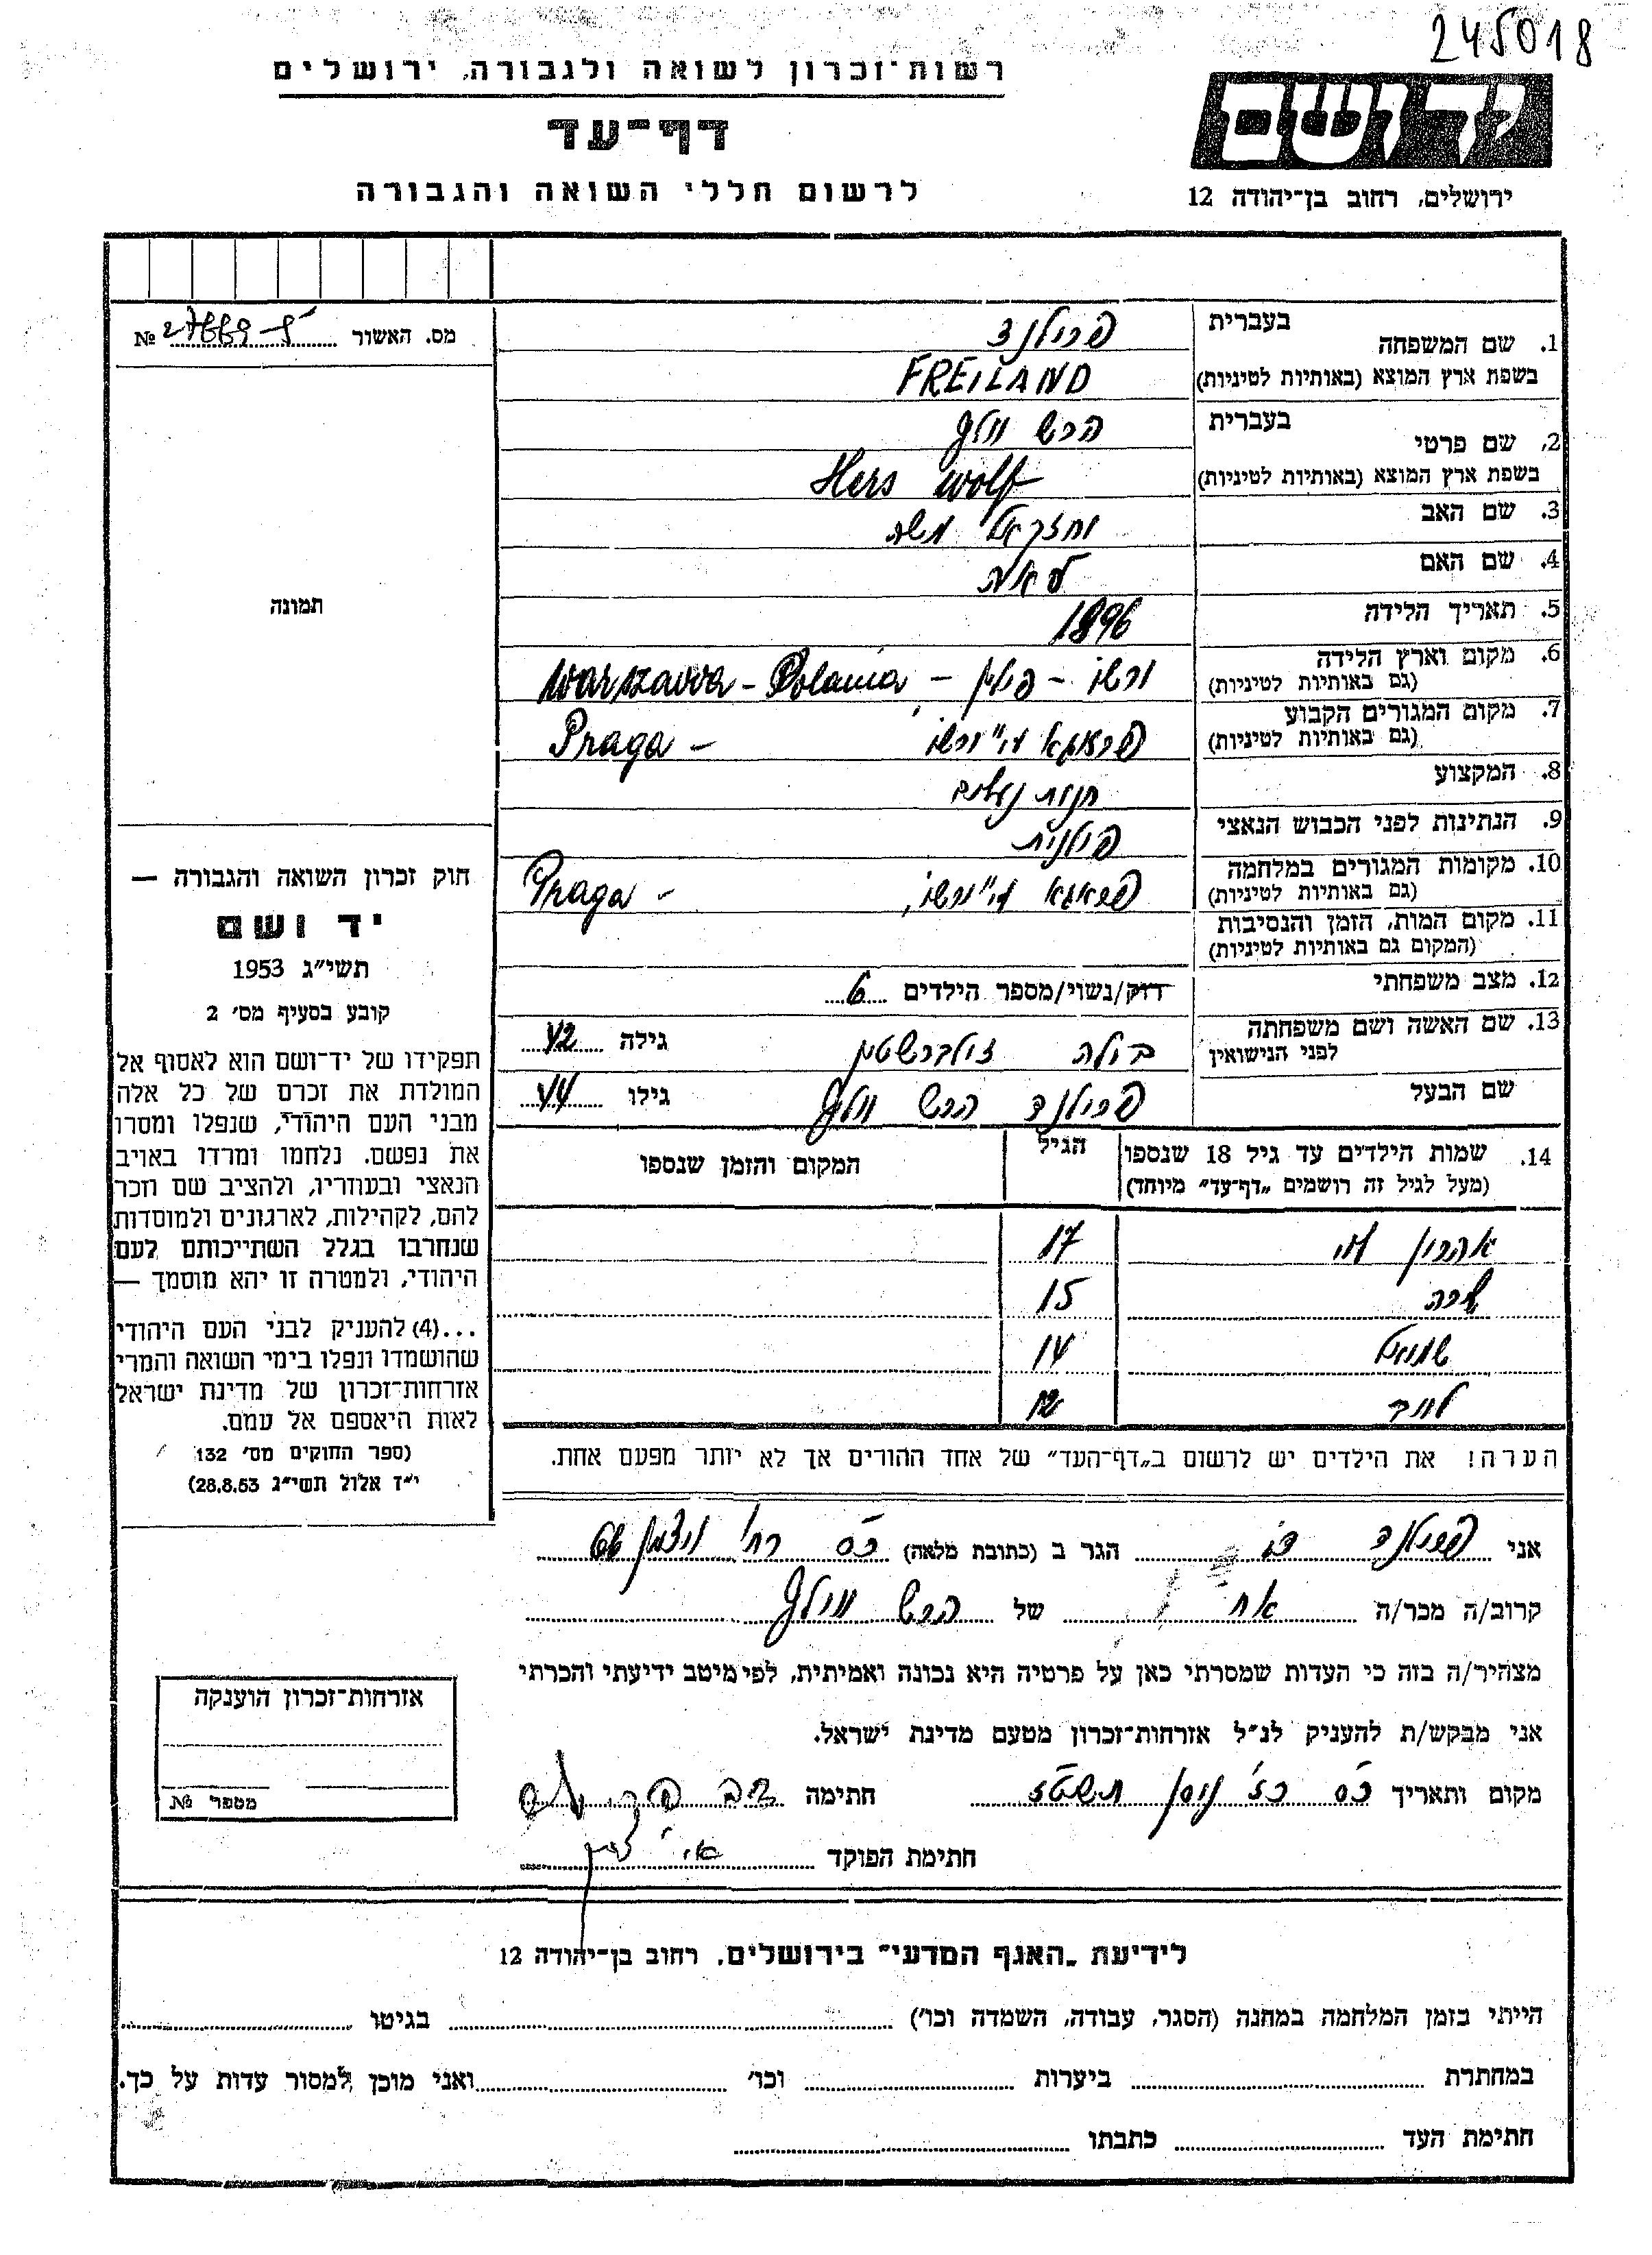 245018
רשות־זכרון לשואה ולגבורה, ירושלים
דף־עד
לרשום חללי השואה והגבורה
יד ושם
ירושלים, רחוב בן־יהודה 12
מס. האשור № 
תמונה
1. שם המשפחה בעברית פרילנד
בשפת ארץ המוצא (באותיות לטיניות) FREILAND
2. שם פרטי בעברית הרש וולף
בשפת ארץ המוצא (באותיות לטיניות) Hers Wolf
3. שם האב משה
4. שם האם
5. תאריך הלידה 1896
6. מקום וארץ הלידה (גם באותיות לטיניות) ורשו – פולין – Warszawa – Polania
7. מקום המגורים הקבוע (גם באותיות לטיניות) פראגא ע"י ורשו – Praga
8. המקצוע חנות נעלים
9. הנתינות לפני הכבוש הנאצי פולנית
10. מקומות המגורים במלחמה (גם באותיות לטיניות) פראגא ע"י ורשו, – Praga
11. מקום המות, הזמן והנסיבות
(המקום גם באותיות לטיניות)
12. מצב משפחתי רווק/נשוי/מספר הילדים 6
13. שם האשה ושם משפחתה לפני הנישואין בילה זילברשטין גילה 42
שם הבעל פרילנד הרש וולף גילו 44
14. שמות הילדים עד גיל 18 שנספו
(מעל לגיל זה רושמים „דף־עד" מיוחד)
הגיל
המקום והזמן שנספו
אהרון 17
שרה 15
שמואל 14
12
הערה! את הילדים יש לרשום ב„דף־העד" של אחד ההורים אך לא יותר מפעם אחת.
חוק זכרון השואה והגבורה —
יד ושם
תשי"ג 1953
קובע בסעיף מס' 2
תפקידו של יד־ושם הוא לאסוף אל
המולדת את זכרם של כל אלה
מבני העם היהודי, שנפלו ומסרו
את נפשם. נלחמו ומרדו באויב
הנאצי ובעוזריו, ולהציב שם וזכר
להם, לקהילות, לארגונים ולמוסדות
שנחרבו בגלל השתייכותם לעם
היהודי, ולמטרה זו יהא מוסמך —
...(4) להעניק לבני העם היהודי
שהושמדו ונפלו בימי השואה והמרי
אזרחות־זכרון של מדינת ישראל
לאות היאספם אל עמם.
(ספר החוקים מס' 132
י"ז אלול תשי"ג 28.8.53)
אני פרילנד דב הגר ב (כתובת מלאה) כ"ס רח' ויצמן
קרוב/ה מכר/ה אח של הרש וולף
מצהיר/ה בזה כי העדות שמסרתי כאן על פרטיה היא נכונה ואמיתית, לפי מיטב ידיעתי והכרתי
אני מבקש/ת להעניק לנ"ל אזרחות־זכרון מטעם מדינת ישראל.
מקום ותאריך כ"ס כז' ניסן תשט"ז חתימה
חתימת הפוקד
אזרחות־זכרון הוענקה
מספר №
לידיעת „האגף המדעי" בירושלים, רחוב בן־יהודה 12
הייתי בזמן המלחמה במחנה (הסגר, עבודה, השמדה וכו') בגיטו
במחתרת ביערות וכו' ואני מוכן למסור עדות על כך.
חתימת העד כתבתו